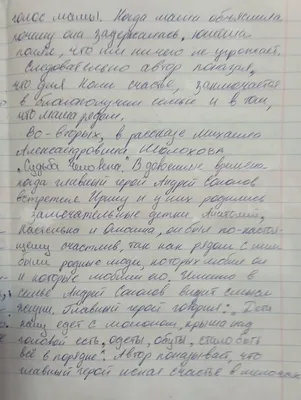 голос мамы. Когда мама объяснила
почему она задержалась, Юшка
понял, что им ничего не угрожает.
Следовательно автор показал,
что для Коли счастье, заключается
в благополучии семьи и в том,
что мама рядом.
Во-вторых, в рассказе Михаила
Александровича Шолохова
„Судьба человека". В довоенные времена
когда главный герой Андрей Соколов
встретил Ирину и у них родились
замечательные детки Анатолий,
Настенька и Олюшка, он был по-насто-
ящему счастлив, так как рядом с ним
были родные люди, которых любил он
и которые любили его. Именно в
семье Андрей Соколов видит смысл
жизни. Главный герой говорил: „Дети
кашу едят с молоком, крыша над
головой есть, одеты, обуты, стало быть
всё в порядке". Автор показывает, что
главный герой искал счастье в мелочах